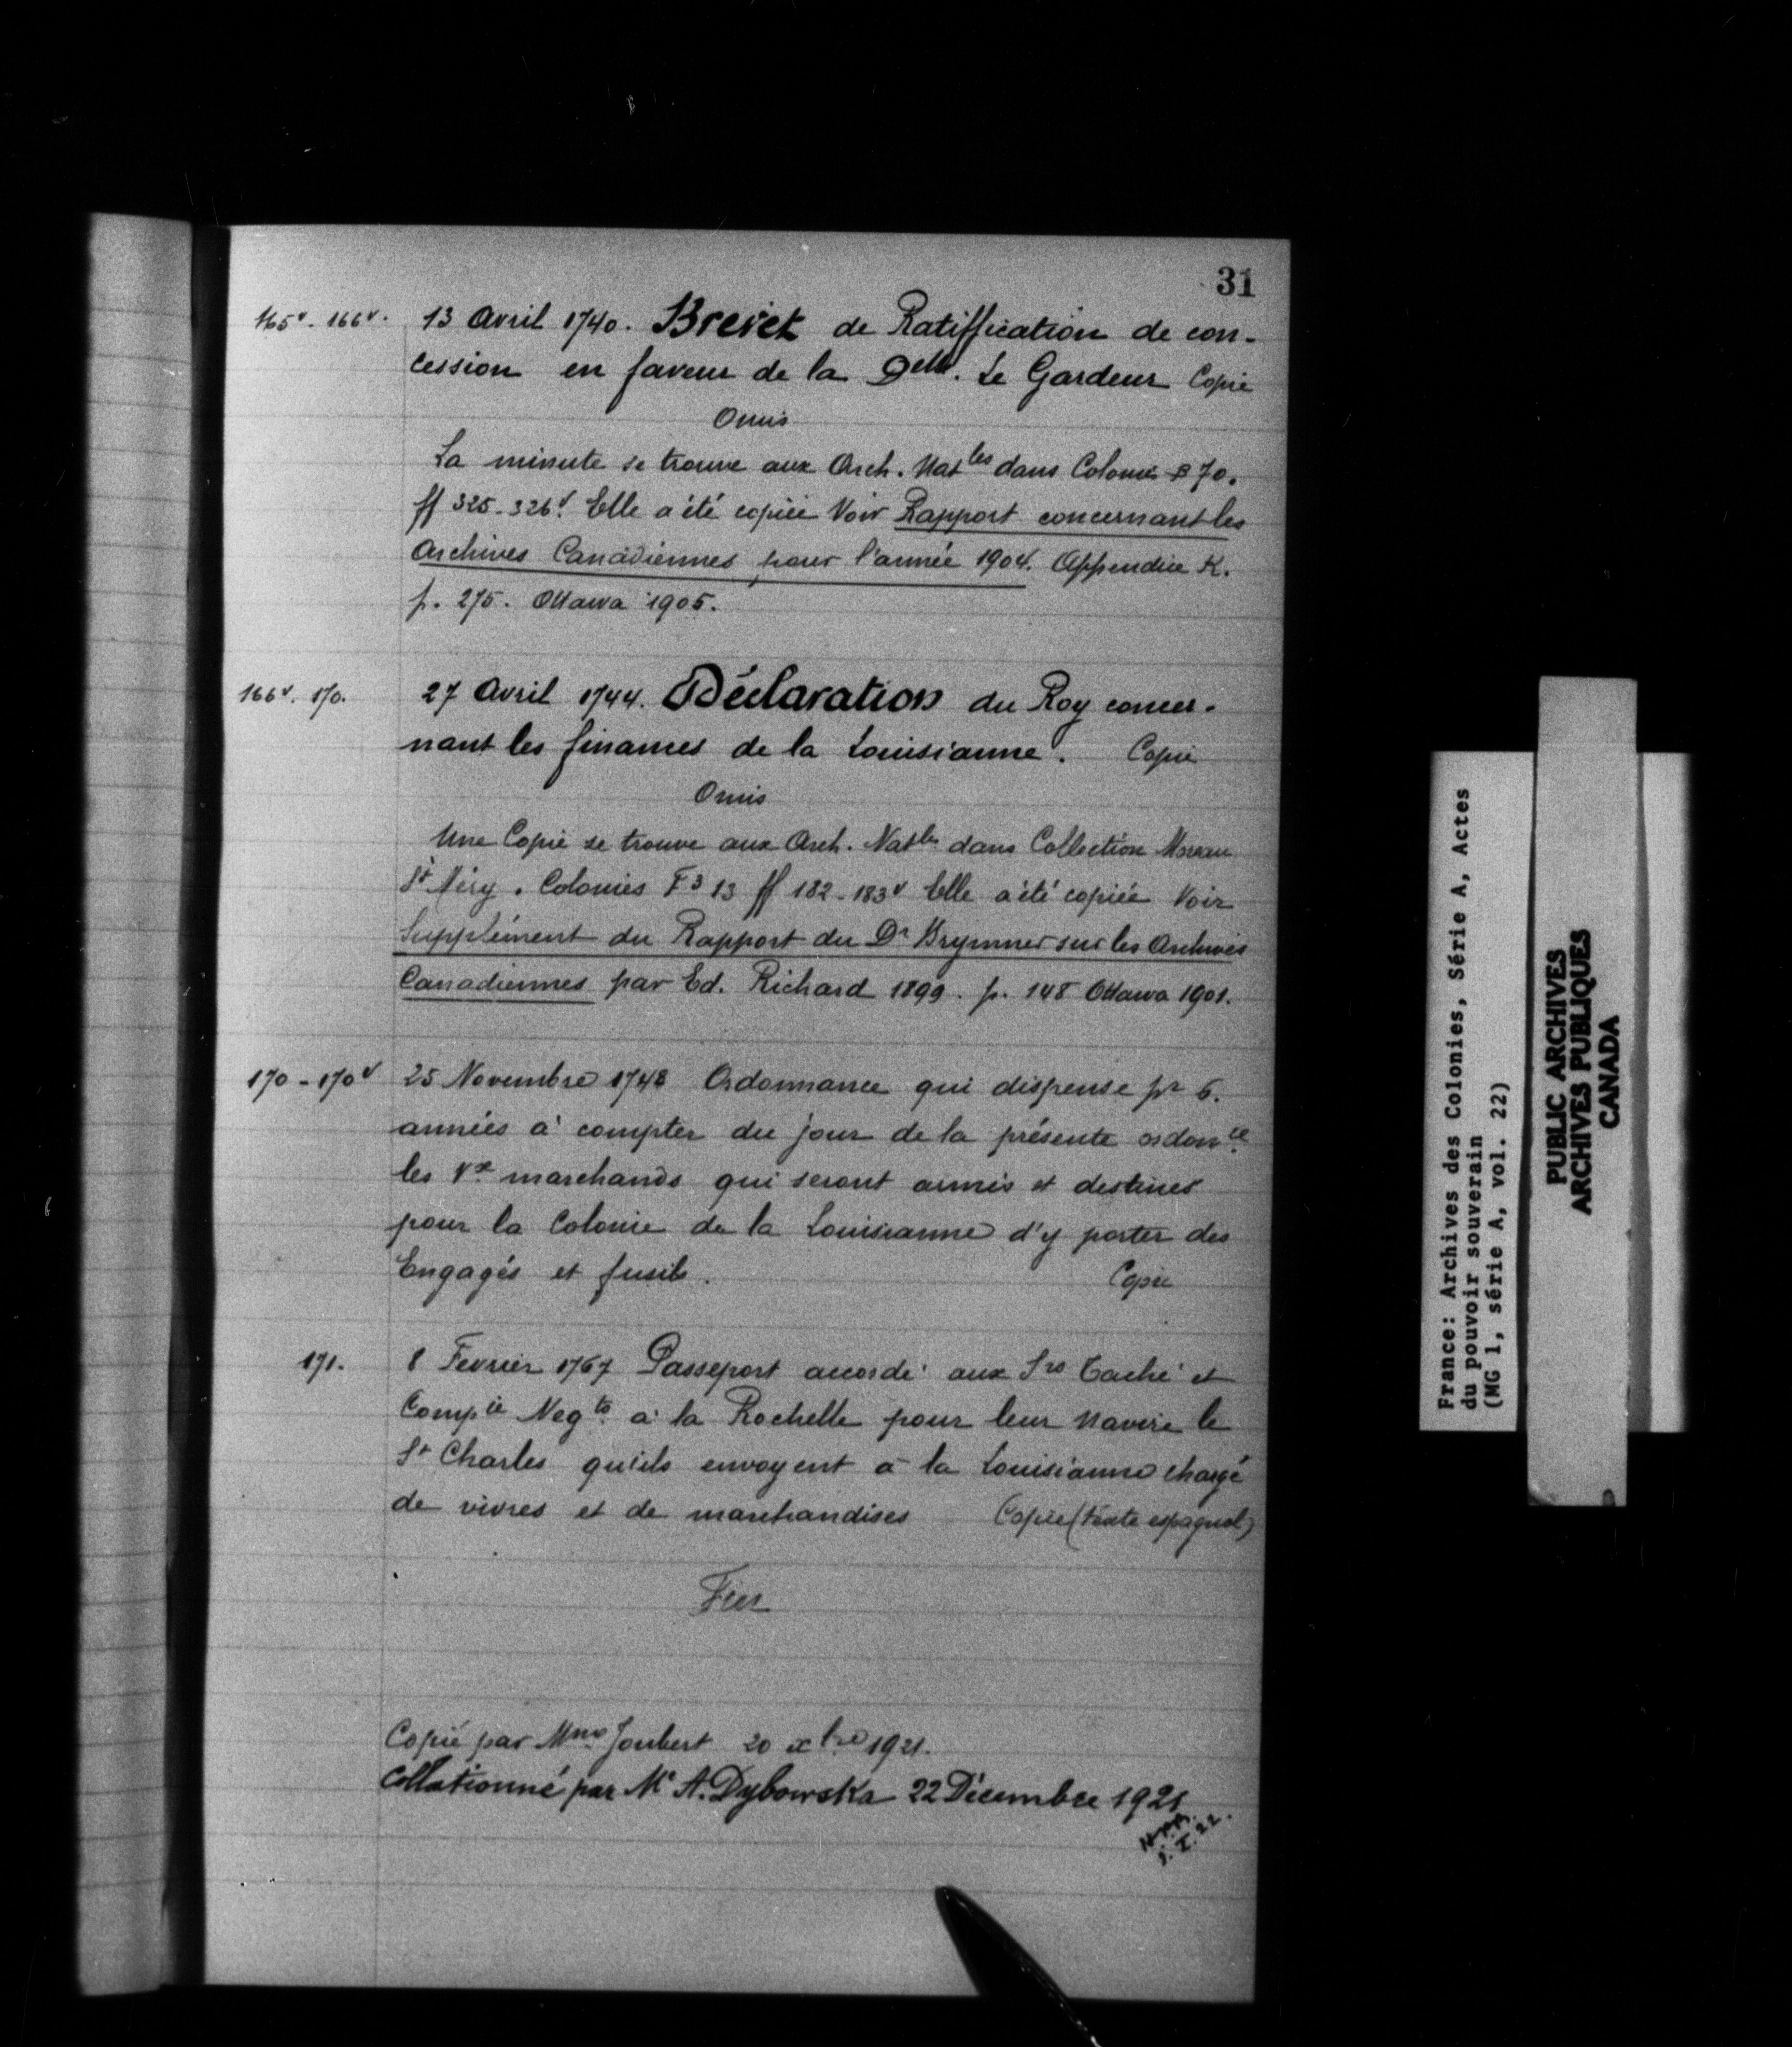 31
165v. 166v. 13 Avril 1740. Brevet de Ratiffication de con-
cession en faveur de la Delle. Le Gardeur Copie
Omis
La minute se trouve aux Arch. Natles dans Colonies B 70.
ff 325-326v. Elle a été copiée Voir Rapport concernant les
Archives Canadiennes pour l'année 1904. Appendice K.
p. 275. Ottawa 1905.
166v. 170. 27 Avril 1744. Déclaration du Roy concer-
nant les finances de la Louisianne. Copie
Omis
Une Copie se trouve aux Arch. Natles dans Collection Moreau
St Méry. Colonies F3 13 ff 182-183v Elle a été copiée Voir
Supplément du Rapport du Dr Brymner sur les Archives
Canadiennes par Ed. Richard 1899. p. 148 Ottawa 1901.
170-170v 25 Novembre 1748 Ordonnance qui dispense pr 6.
années à compter du jour de la présente ordonce
les Vx marchands qui seront armés et destinés
pour la Colonie de la Louisianne d'y porter des
Engagés et fusils. Copie
171. 8 Fevrier 1767 Passeport accordé aux Srs Taché et
Compie Negts à la Rochelle pour leur navire le
St Charles qu'ils envoyent à la Louisianne chargé
de vivres et de marchandises Copie (texte espagnol)
Fin
Copié par Mme Joubert 20 xbre 1921.
Collationné par Me A. Dybowska 22 Décembre 1921
I. 22.
France: Archives des Colonies, Série A, Actes
du pouvoir souverain
(MG 1, série A, vol. 22)
PUBLIC ARCHIVES
ARCHIVES PUBLIQUES
CANADA